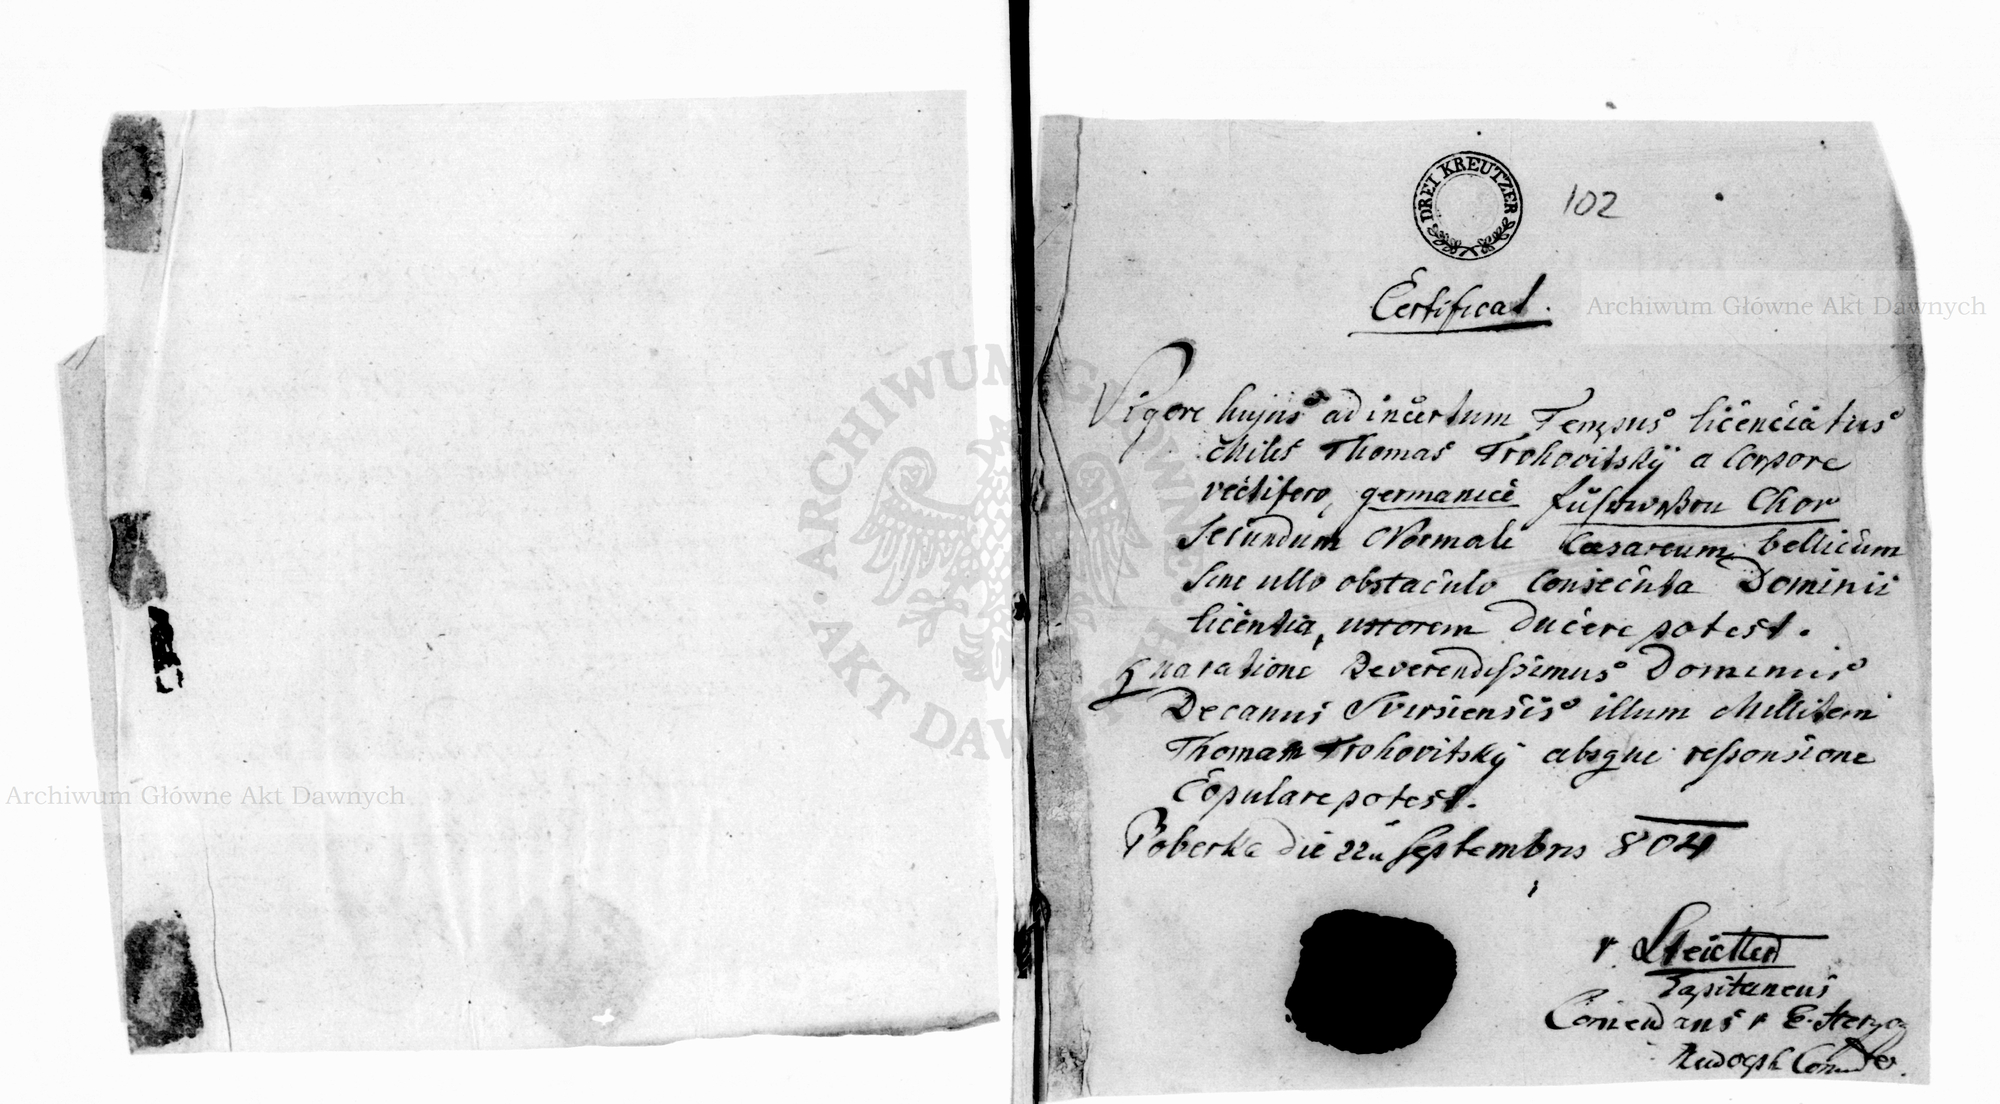 DREI KREUTZER
102
Certificat.
Archiwum Główne Akt Dawnych
Vigore hujus ad incertum Tempus licenciatus
Miles Thomas Trohovitskÿ a Corpore
vectifero, germanicè Fuhrwesen Chor
Secundum Normale Caesareum bellicum
sine ullo obstaculo Consecuta Dominii
licentia, uxorem Ducere potest.
Qua ratione Reverendissimus Dominus
Decanus Svirsiensis illum Militem
Thomam Trohovitskÿ absque responsione
Copulare potest.
Boberka die 22a Septembris 804
ARCHIWUM GŁÓWNE AKT DAWNYCH
Archiwum Główne Akt Dawnych
Capitaneus
Comendans v E. Herzog
Rudolph